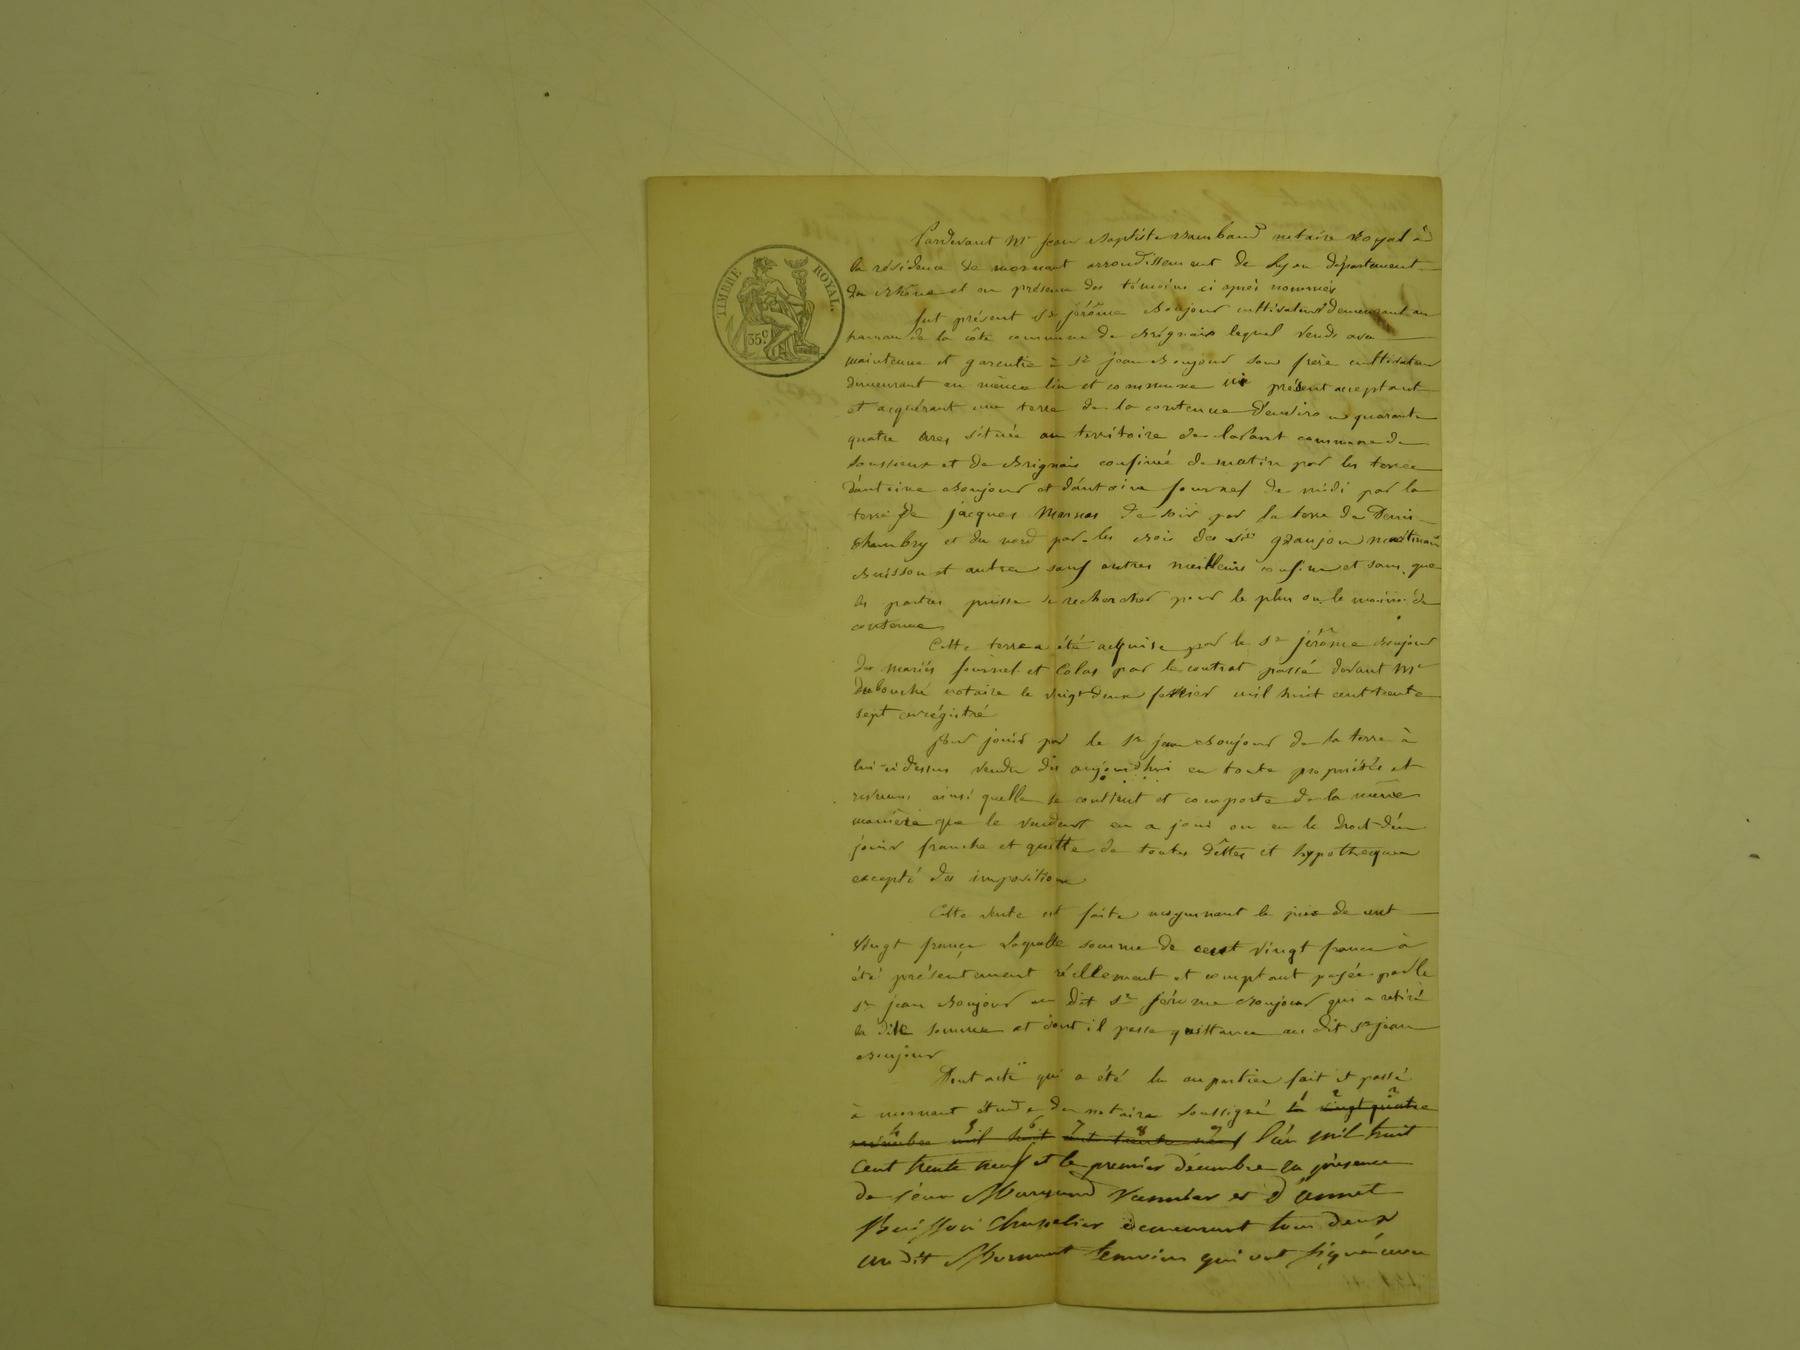 TIMBRE ROYAL.
35c
Pardevant Me Jean Baptiste Rambaud notaire Royal à
la résidence de mornant arrondissement de Lyon département
du Rhône et en présence des témoins ci après nommés
fut présent Sr jérôme Boujour cultivateur demeurant au
hameau de la côte commune de Brignais lequel vends avec
maintenue et garentie à Sr jean Boujour son frère cultivateur
demeurant au même lieu et commune ici présent acceptant
et acquérant une terre de la contenue d'environ quarante
quatre ares située au territoire de commune de
Soussieux et de Brignais confiné de matin par les terres
d'antoine Boujour et d'antoine fournel de midi par la
terre de jacques de soir par la terre de Denis
Chambry et du nord par les Bois des Srs granjon
Buisson et autres sauf autres meilleurs confins et sans que
les parties puisse se rechercher pour le plus ou le moins de
contenue
Cette terre a été acquise par le Sr jérôme Boujour
des mariés fournel et Colas par le contrat passé devant Me
Dubouché notaire le vingt deux février mil huit cent trente
sept enrégistré
Pour jouir par le Sr jean Boujour de la terre à
lui ci dessus vendue dès aujourd'hui en toute propriétés et
revenus ainsi quelle se contient et comporte de la même
manière que le vendeur en a joui ou eu le droit d'en
jouir franche et quitte de toutes dêttes et hypothèques
excepté des impositions
Cette vente est faite moyennant le prix de cent
vingt francs Laquelle somme de cent vingt francs à
été présentement réellement et comptant payée par le
Sr jean Boujour au dit Sr jérôme Boujour qui a retiré
la dite somme et dont il passe quittance au dit Sr jean
Boujour
Dont acte qui a été lu au parties fait et passé
à mornant étude du notaire soussigné le vingt quatre
novembre mil huit cent trente neuf l'an mil huit
cent trente neuf et le premier décembre en présence
de jean et d'annet
Buisson Chapelier demeurant tous deux
au dit Mornant témoins qui ont signé avec